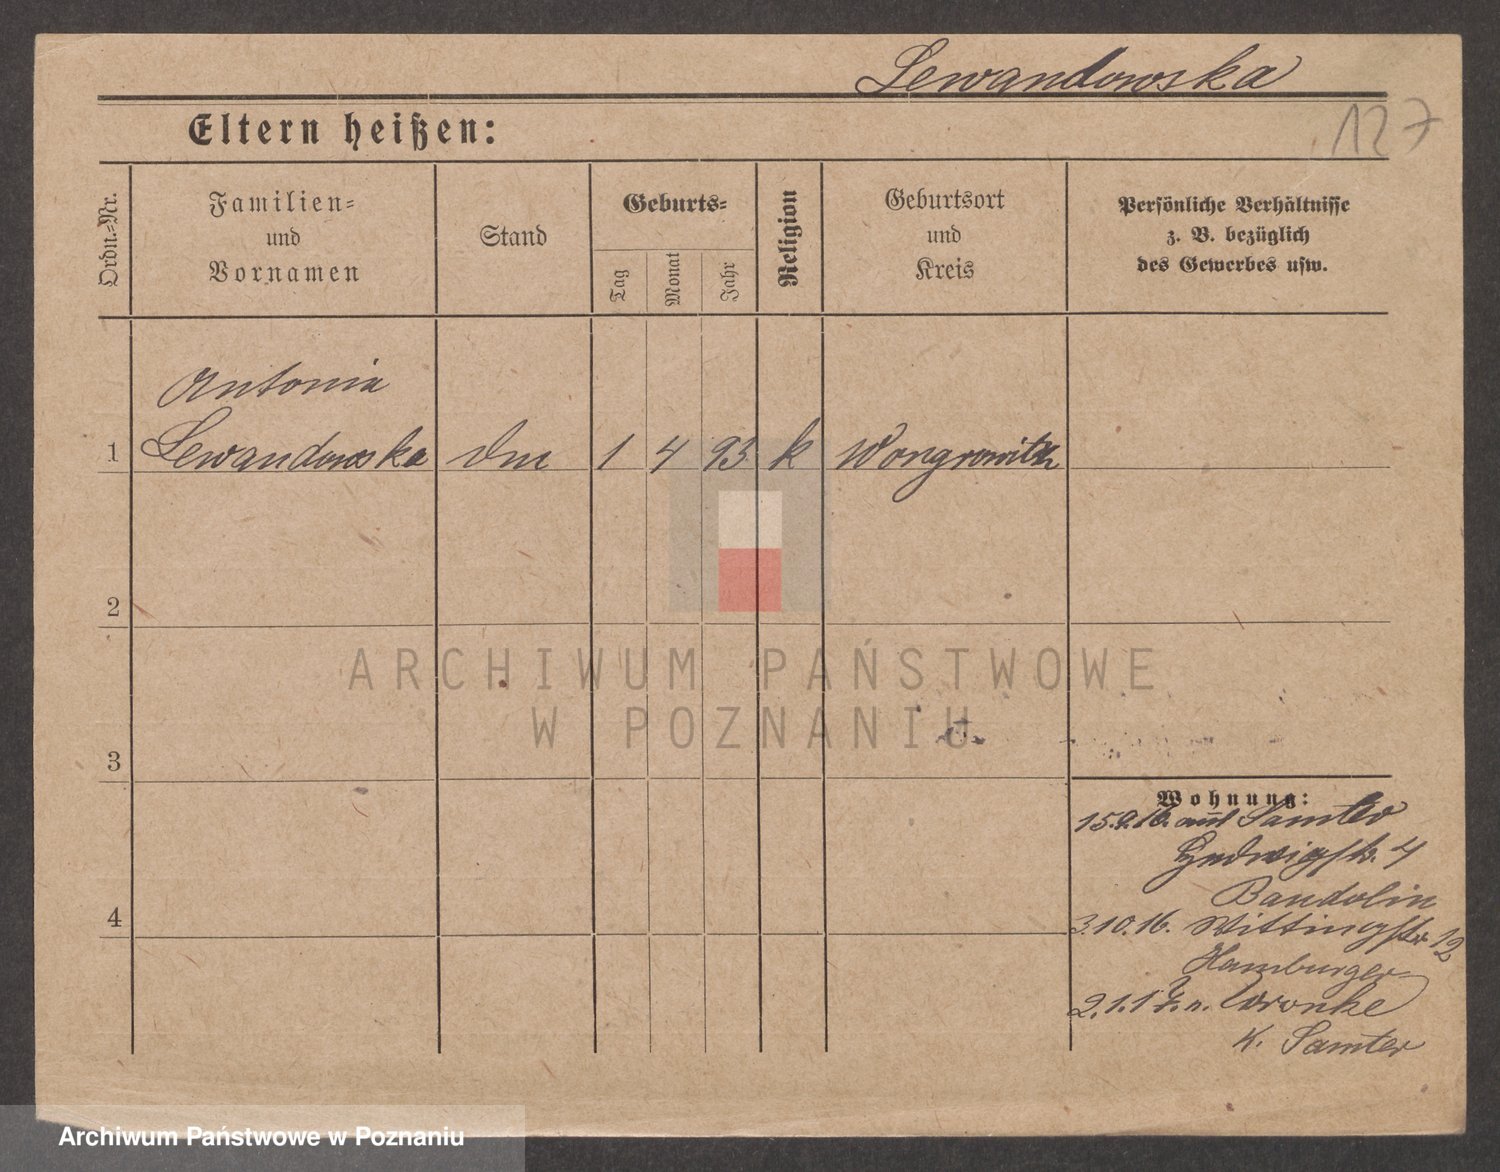 Lewandowska
127
Eltern heißen:
Ordn.=Nr.
Familien=
und
Vornamen
Stand
Geburts=
Tag
Monat
Jahr
Religion
Geburtsort
und
Kreis
Persönliche Verhältnisse
z. B. bezüglich
des Gewerbes usw.
Antonia
1 Lewandowska 1 4 93 k Wongrowitz
2
3
4
Wohnung:
15.9.16. aus Samter
Hedwigstr. 4
Bandolin
3.10.16. Wittingstr 12
Hamburger
2.1.17. n. Wronke
K. Samter
ARCHIWUM PAŃSTWOWE
W POZNANIU
Archiwum Państwowe w Poznaniu